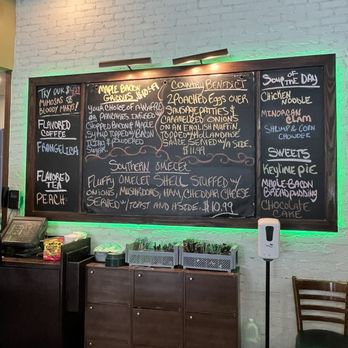 Try our $4
Mimosas or
Bloody Mary!
Flavored
Coffee
Frangelica
Flavored
Tea
Peach
Maple Bacon
Your choice of a waffle
or pancakes infused
chopped bacon & maple
syrup topped w/ bacon
& powdered
sugar
Country Benedict
2 Poached Eggs over
Sausage Patties &
Caramelized Onions
on an English Muffin
topped w/ Hollandaise
Sauce served w/ a side.
$11.99
Southern Omelet
Fluffy Omelet Shell stuffed w/
onions, mushrooms, ham, cheddar cheese
served w/ toast and a side $10.99
Soup of the Day
Chicken
Noodle
Manhattan
Clam
Shrimp & Corn
Chowder
Sweets
Key Lime Pie
Maple Bacon
Bread Pudding
Chocolate
Cake